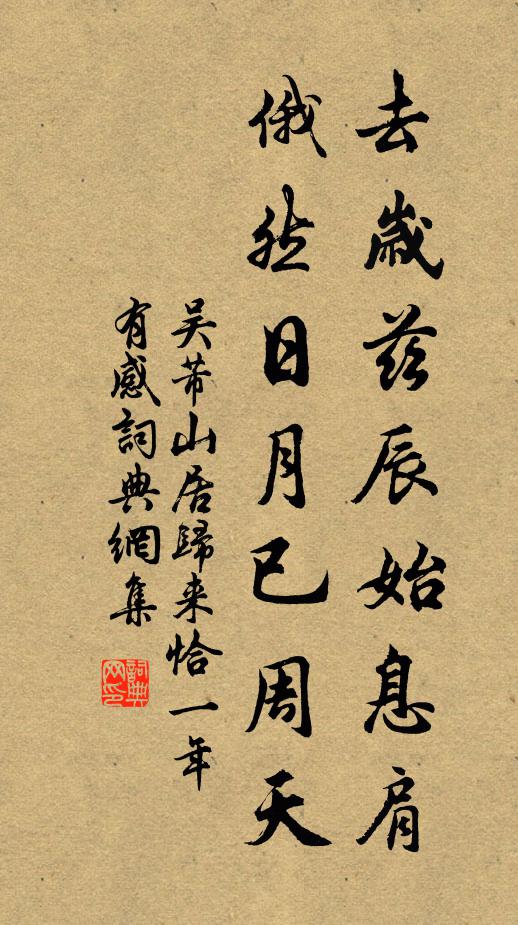 去歲茲辰始息肩
俄然日月已周天
吴芾山居歸来恰一年
有感詞典網集
詞典
网印